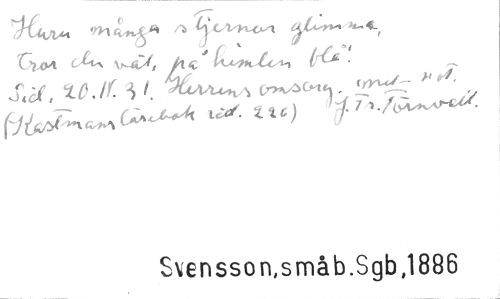 Huru många stjernor glimma,
tror du väl, på himlen blå!
Sid. 20. N. 31. Herrens omsorg. med not.
(Kastmans läsebok sid. 226) J. Fr. Törnvall.
Svensson,småb.Sgb,1886